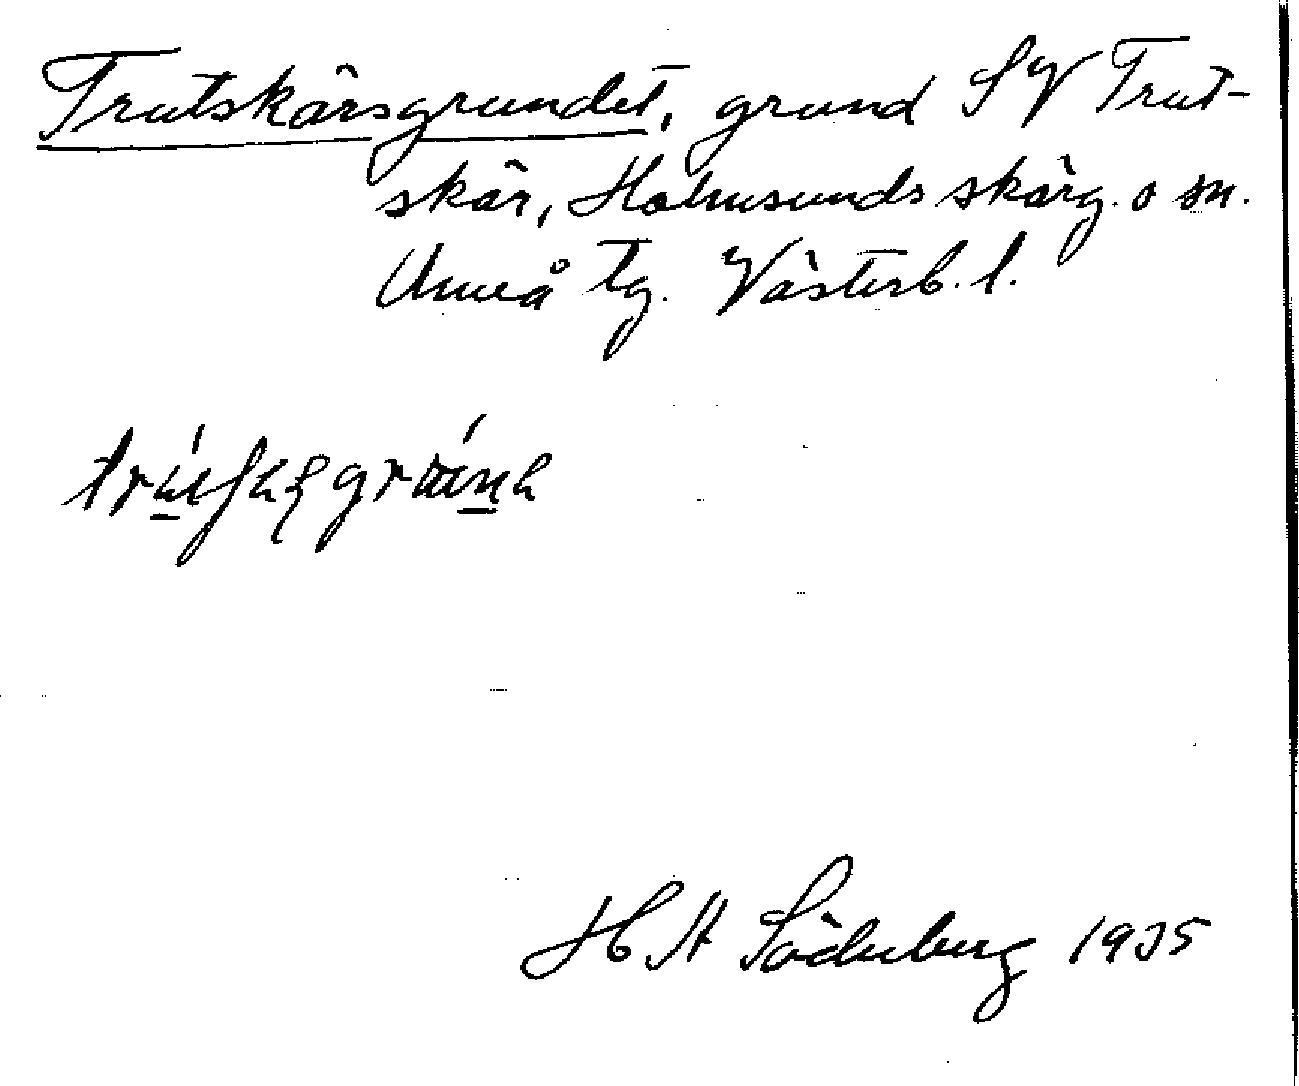 Trutskärsgrundet, grund SV Trut-
skär, Holmsunds skärg. o sn.
Umeå tg. Västerb. l.
H St Söderberg 1935